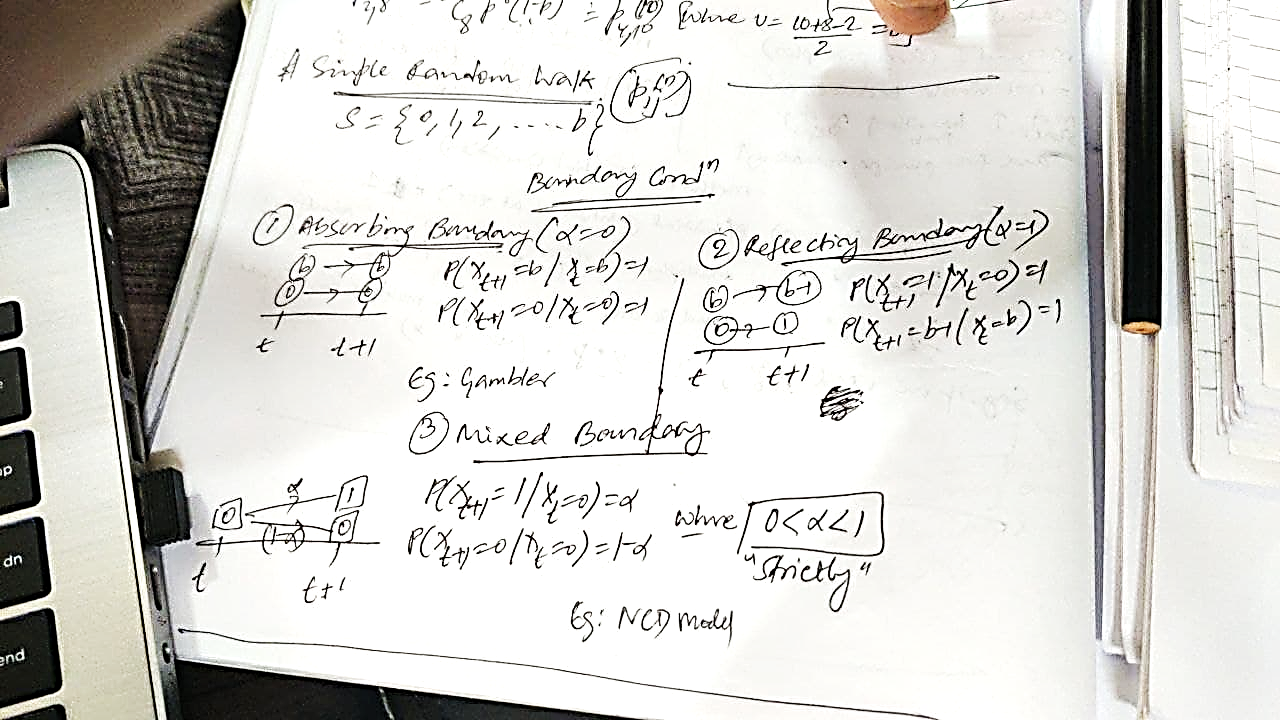 P2,8 = C8 p (1-p) = p4,10 (10) [where u = (10+8-2)/2 =
A Simple Random Walk (pij(n))
S = {0, 1, 2, ..... b}
Boundary Condn
① Absorbing Boundary (α=0)
b → b P(Xt+1 = b / Xt = b) = 1
0 → 0 P(Xt+1 = 0 / Xt = 0) = 1
t t+1
Eg: Gambler
② Reflecting Boundary (α=1)
b → b-1 P(Xt+1 = 1 / Xt = 0) = 1
0 → 1 P(Xt+1 = b-1 / Xt = b) = 1
t t+1
③ Mixed Boundary
0 α 1 P(Xt+1 = 1 / Xt = 0) = α
(1-α) 0 P(Xt+1 = 0 / Xt = 0) = 1-α
where 0 < α < 1
"Strictly"
t t+1
Eg: NCD model
dn
end